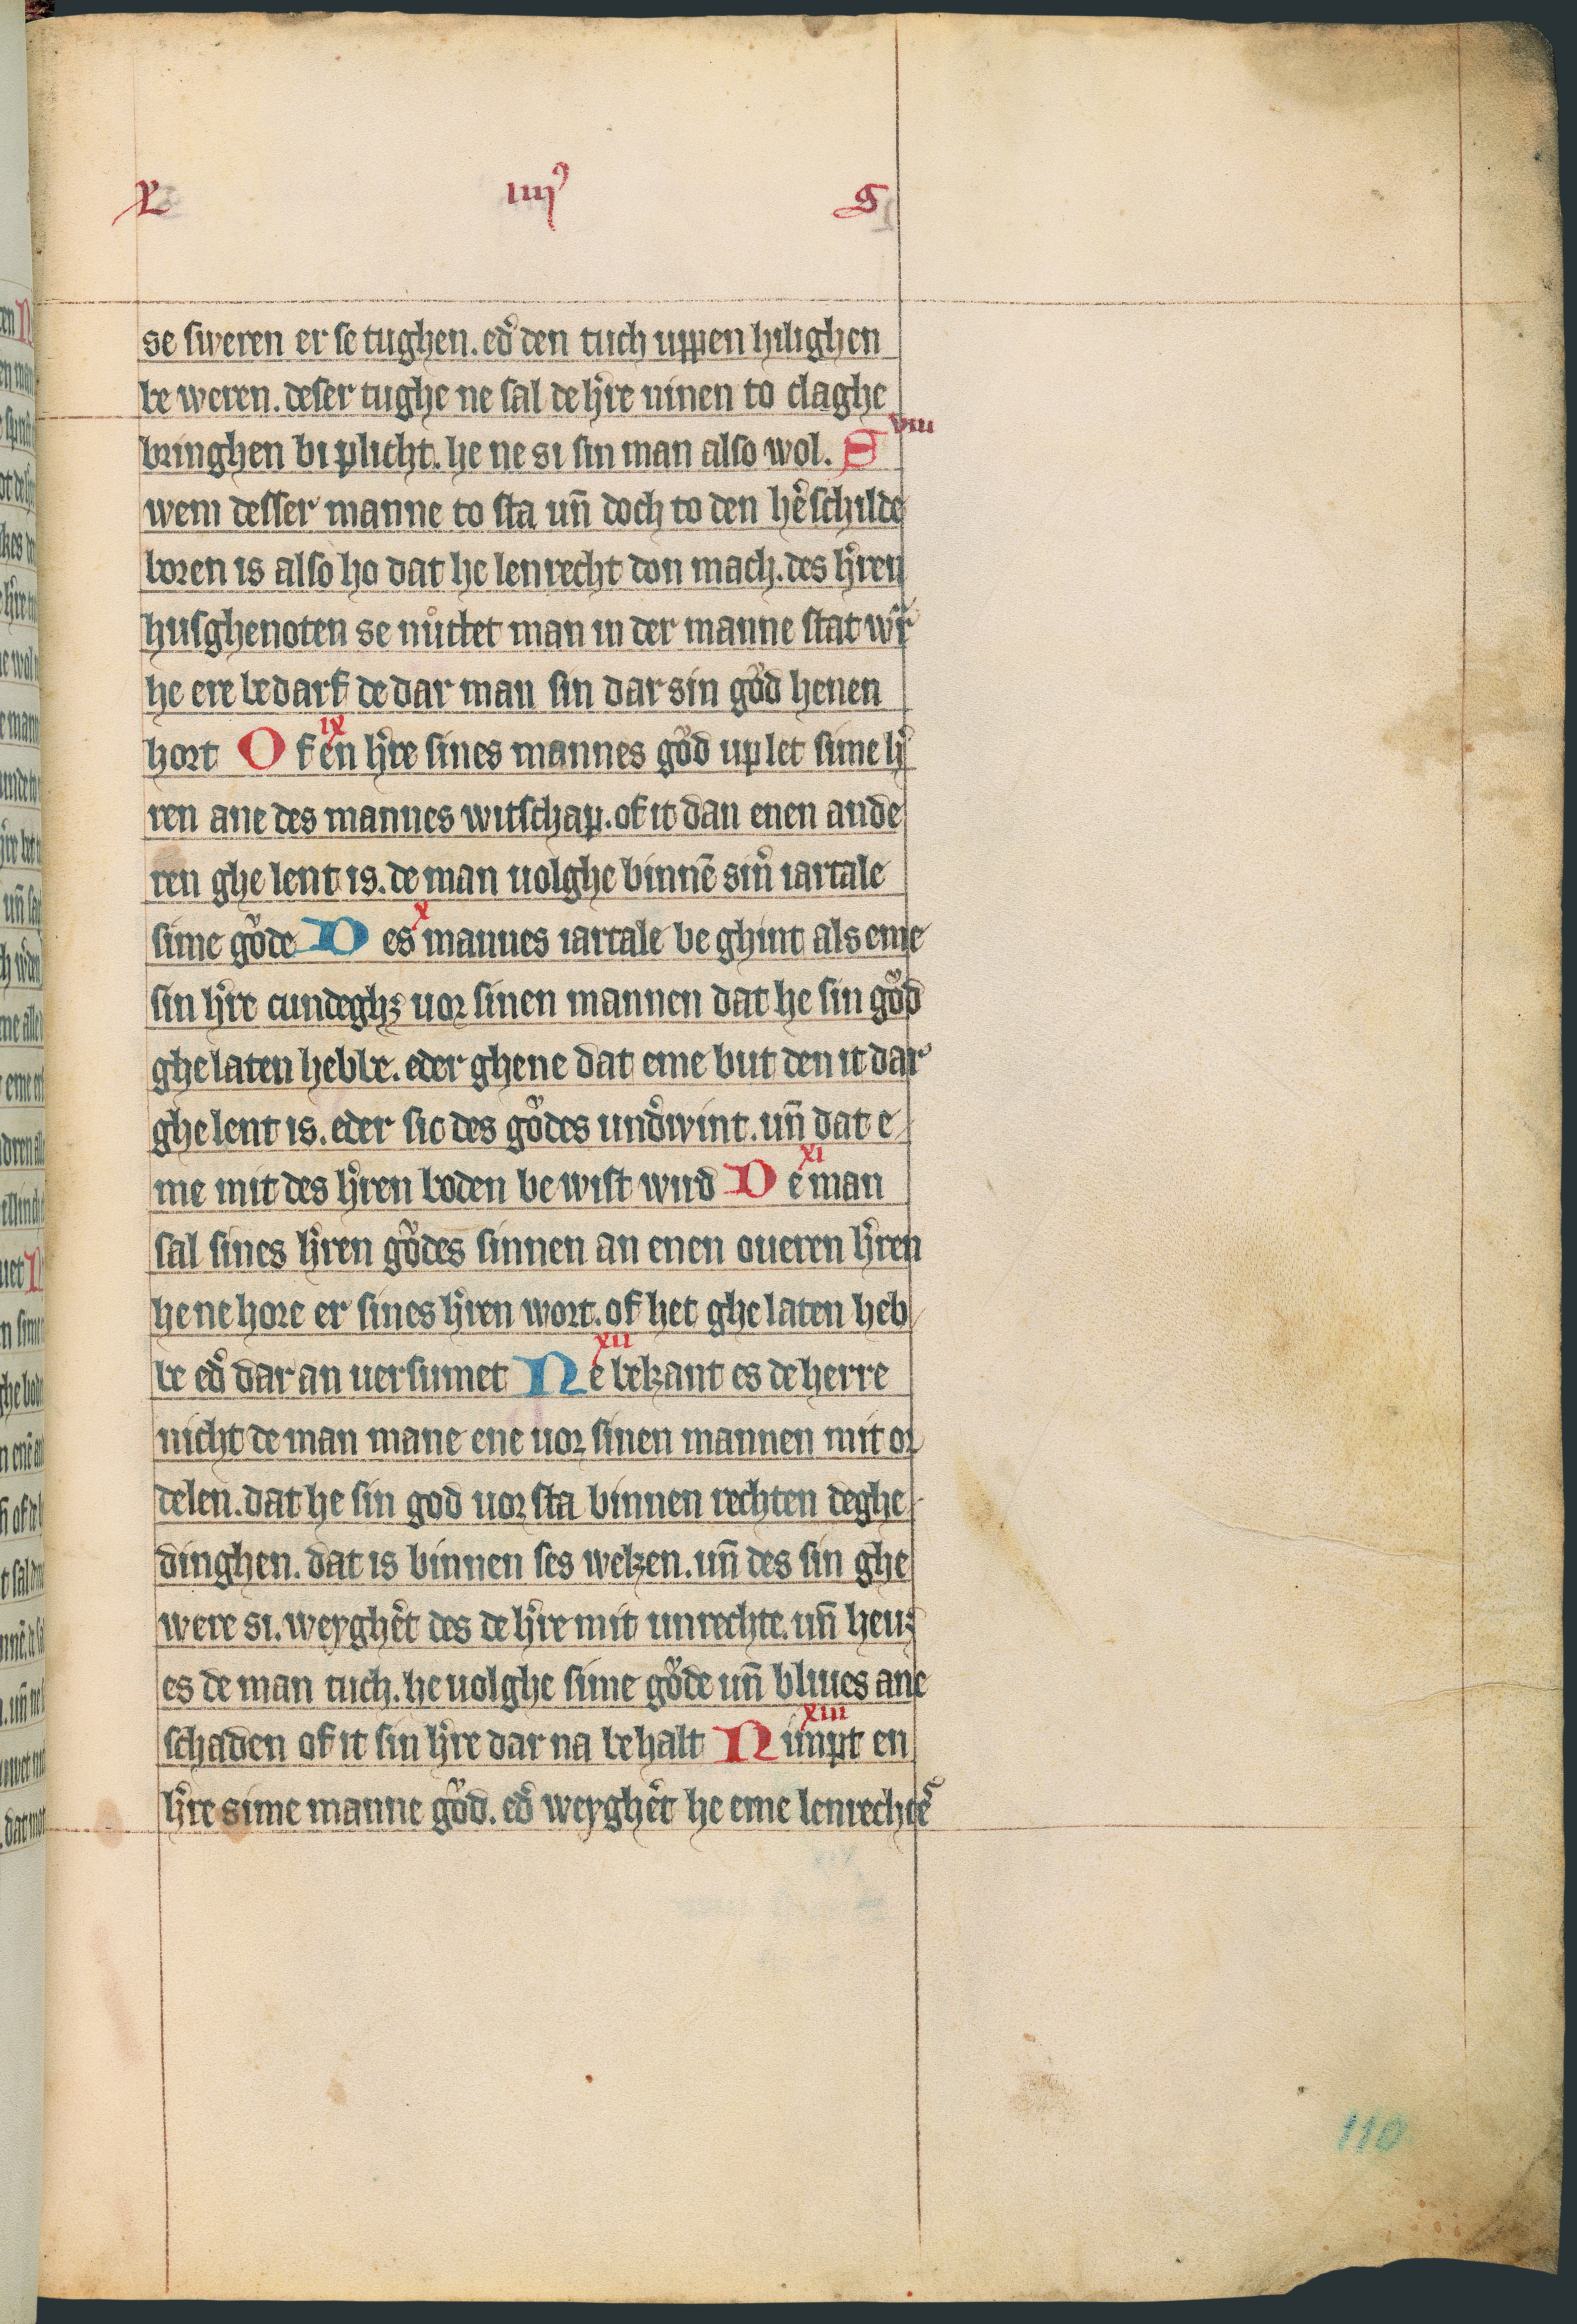 L IIII⁹ S
se sweren er se tughen. ed̕ den tuch uppen hilighen
be weren. deser tughe ne sal de h̕re ninen to claghe
bringhen bi plicht. he ne si sin man also wol. S VIII
wem desser manne to sta un̄ doch to den he̕schilde
boren is also ho dat he lenrecht don mach. des h̕ren
husghenoten se nůttet man in der manne stat w̕r
he ere bedarf de dar man sin dar sin gŏd henen
hort IX O f en h̕re sines mannes gŏd up let sime h̕
ren ane des mannes witschap. of it dan enen ande
ren ghe lent is. de man uolghe binnē sin̕ iartale
sime gŏde X D es mannes iartale be ghint als eme
sin h̕re cundeghꝫ uor sinen mannen dat he sin gŏd
ghe laten hebbe. eder ghene dat eme but den it dar
ghe lent is. eder sic des gŏdes und̕wint. un̄ dat e
me mit des h̕ren boden be wist wird XI D e man
sal sines h̕ren gŏdes sinnen an enen oueren h̕ren
he ne hore er sines h̕ren wort. of het ghe laten heb
be ed̕ dar an uersumet XII N e bekant es de herre
nicht de man mane ene uor sinen mannen mit or
delen. dat he sin god uor sta binnen rechten deghe
dinghen. dat is binnen ses weken. un̄ des sin ghe
were si. weyghe̕t des de h̕re mit unrechte. un̄ heuꝫ
es de man tuch. he uolghe sime gŏde un̄ bliues ane
schaden of it sin h̕re dar na be halt XIII N impt en
h̕re sime manne gŏd. ed̕ weyghe̕t he eme lenrechte̕
110